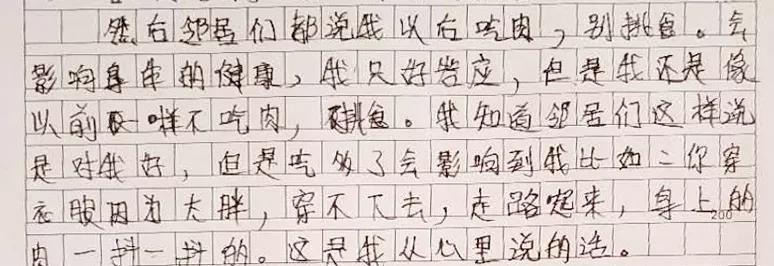 然右邻居们都说我以右吃肉，别挑食。会
影响身体的健康，我只好答应，但是我还是像
以前一样不吃肉，挑食。我知道邻居们这样说
是对我好，但是吃多了会影响到我比如：你穿
衣服因为太胖，穿不下去，走路起来，身上的
200
肉一抖一抖的。这是我从心里说的话。